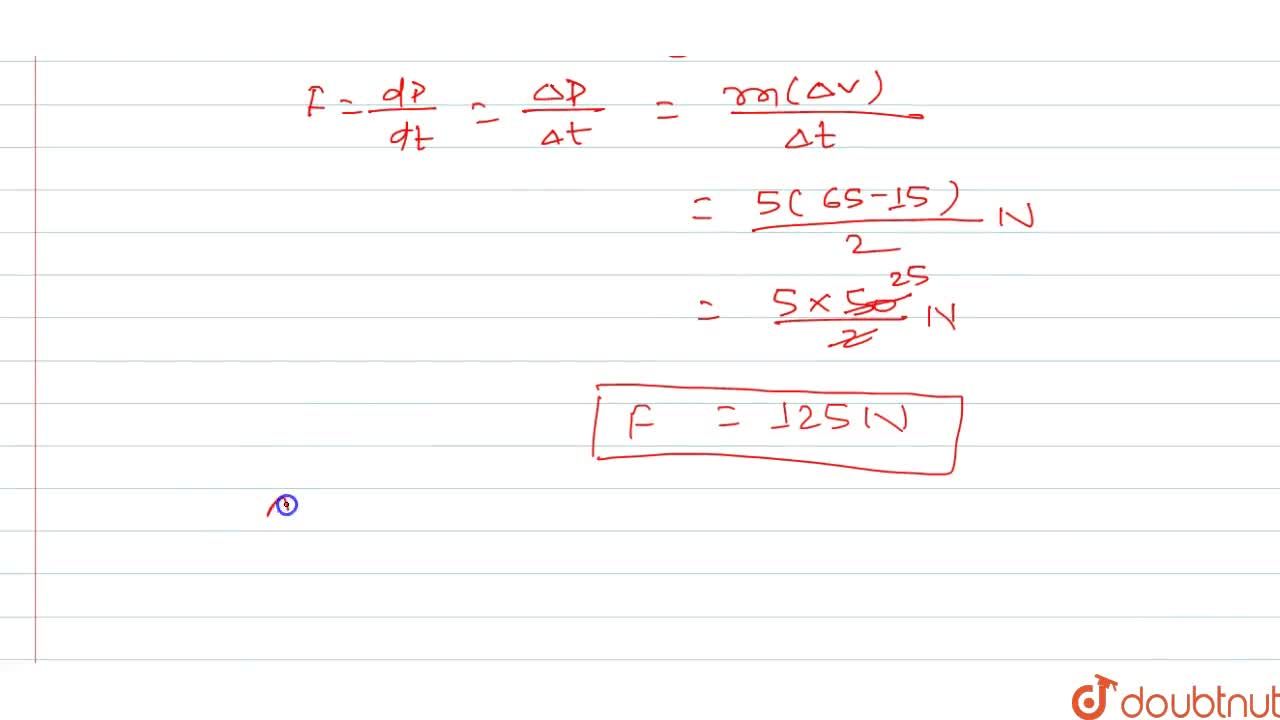 F = dP/dt = ΔP/Δt = m(ΔV)/Δt
= 5(65-15)/2 N
= 5×50/2 N 25
F = 125 N
doubtnut